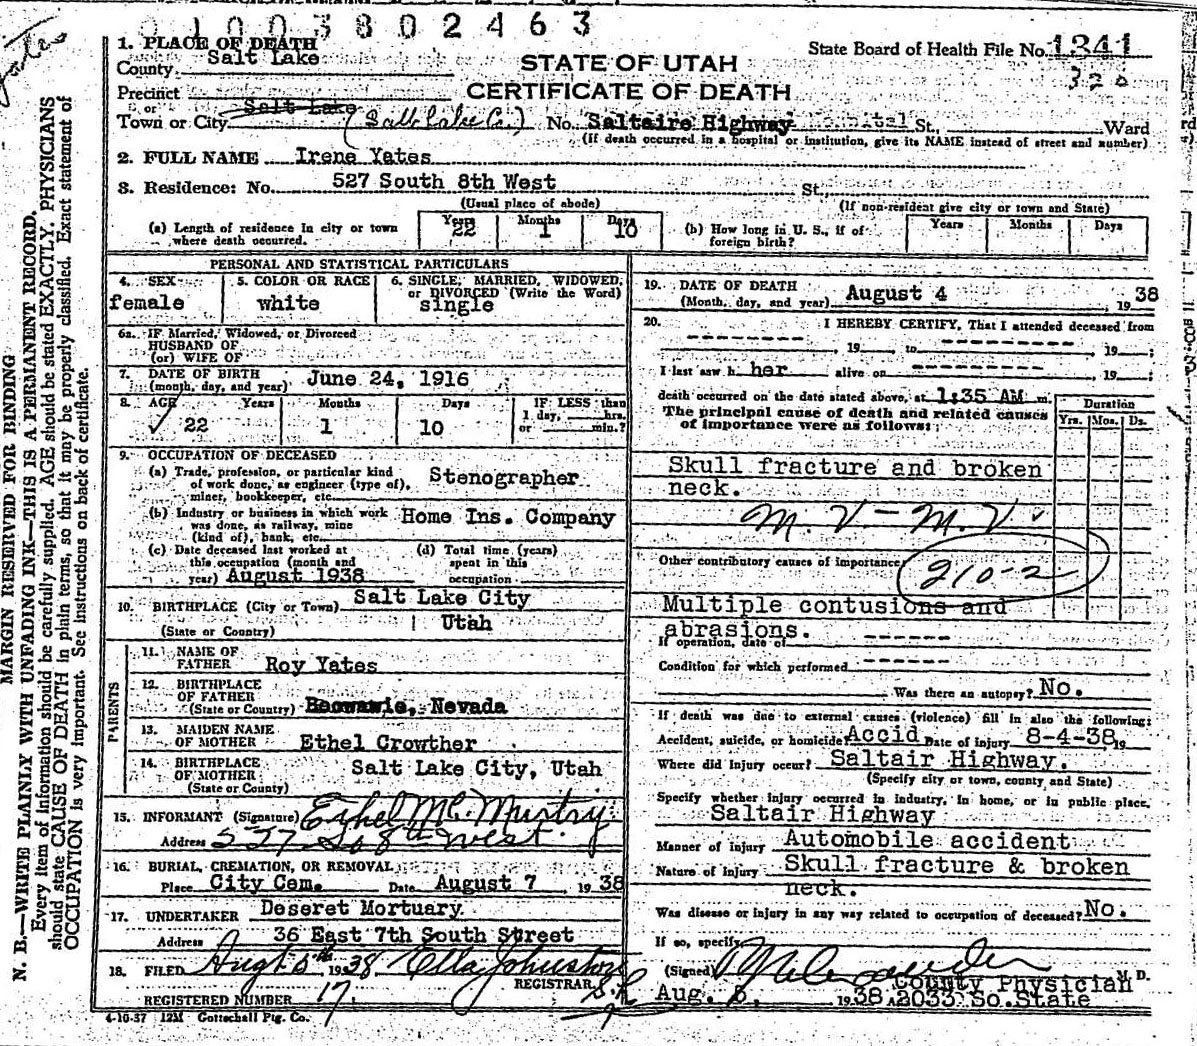 0100380 2463
1. PLACE OF DEATH
County Salt Lake
STATE OF UTAH
CERTIFICATE OF DEATH
State Board of Health File No. 1341
320
Precinct
or Salt Lake
Town or City (Salt Lake Co.) No. Saltaire Highway St., Ward
(If death occurred in a hospital or institution, give its NAME instead of street and number)
2. FULL NAME Irene Yates
3. Residence: No. 527 South 8th West St.
(Usual place of abode) (If non-resident give city or town and State)
(a) Length of residence in city or town where death occurred. Years 22 Months 1 Days 10
(b) How long in U. S., if of foreign birth? Years Months Days
PERSONAL AND STATISTICAL PARTICULARS
4. SEX female
5. COLOR OR RACE white
6. SINGLE, MARRIED, WIDOWED, or DIVORCED (Write the Word) single
6a. IF Married, Widowed, or Divorced
HUSBAND OF
(or) WIFE OF
7. DATE OF BIRTH
(month, day, and year) June 24, 1916
8. AGE Years 22 Months 1 Days 10 IF LESS than 1 day, hrs. or min.?
9. OCCUPATION OF DECEASED
(a) Trade, profession, or particular kind
of work done, as engineer (type of),
miner, bookkeeper, etc. Stenographer
(b) Industry or business in which work
was done, as railway, mine
(kind of), bank, etc. Home Ins. Company
(c) Date deceased last worked at
this occupation (month and
year) August 1938
(d) Total time (years)
spent in this
occupation
10. BIRTHPLACE (City or Town) Salt Lake City
(State or Country) Utah
PARENTS
11. NAME OF
FATHER Roy Yates
12. BIRTHPLACE
OF FATHER
(State or Country) Beowawie, Nevada
13. MAIDEN NAME
OF MOTHER Ethel Crowther
14. BIRTHPLACE
OF MOTHER
(State or Country) Salt Lake City, Utah
15. INFORMANT (Signature) Ethel Mc. Murtry
Address 527 So 8th West.
16. BURIAL, CREMATION, OR REMOVAL
Place City Cem. Date August 7 1938
17. UNDERTAKER Deseret Mortuary
Address 36 East 7th South Street
18. FILED Augt 5th 1938 Ella Johnston
REGISTRAR
REGISTERED NUMBER 17.
4-10-37 12M Gottschall Ptg. Co.
19. DATE OF DEATH
(Month, day, and year) August 4 1938
20. I HEREBY CERTIFY, That I attended deceased from
19 to 19 ;
I last saw h her alive on 19 ;
death occurred on the date stated above, at 1:35 AM m.
The principal cause of death and related causes
of importance were as follows:
Duration
Yrs. Mos. Ds.
Skull fracture and broken
neck.
M. V - M. V.
Other contributory causes of importance:
210-2
Multiple contusions and
abrasions.
If operation, date of
Condition for which performed
Was there an autopsy? No.
If death was due to external causes (violence) fill in also the following:
Accident, suicide, or homicide? Accid Date of injury 8-4-38, 19
Where did injury occur? Saltair Highway.
(Specify city or town, county and State)
Specify whether injury occurred in industry, in home, or in public place.
Saltair Highway
Manner of injury Automobile accident
Nature of injury Skull fracture & broken
neck.
Was disease or injury in any way related to occupation of deceased? No.
If so, specify
(Signed) M. D.
County Physician
Aug. 5, 1938 A 2033 So. State
MARGIN RESERVED FOR BINDING
N. B.—WRITE PLAINLY WITH UNFADING INK—THIS IS A PERMANENT RECORD.
Every item of information should be carefully supplied. AGE should be stated EXACTLY. PHYSICIANS
should state CAUSE OF DEATH in plain terms, so that it may be properly classified. Exact statement of
OCCUPATION is very important. See instructions on back of certificate.
Yates